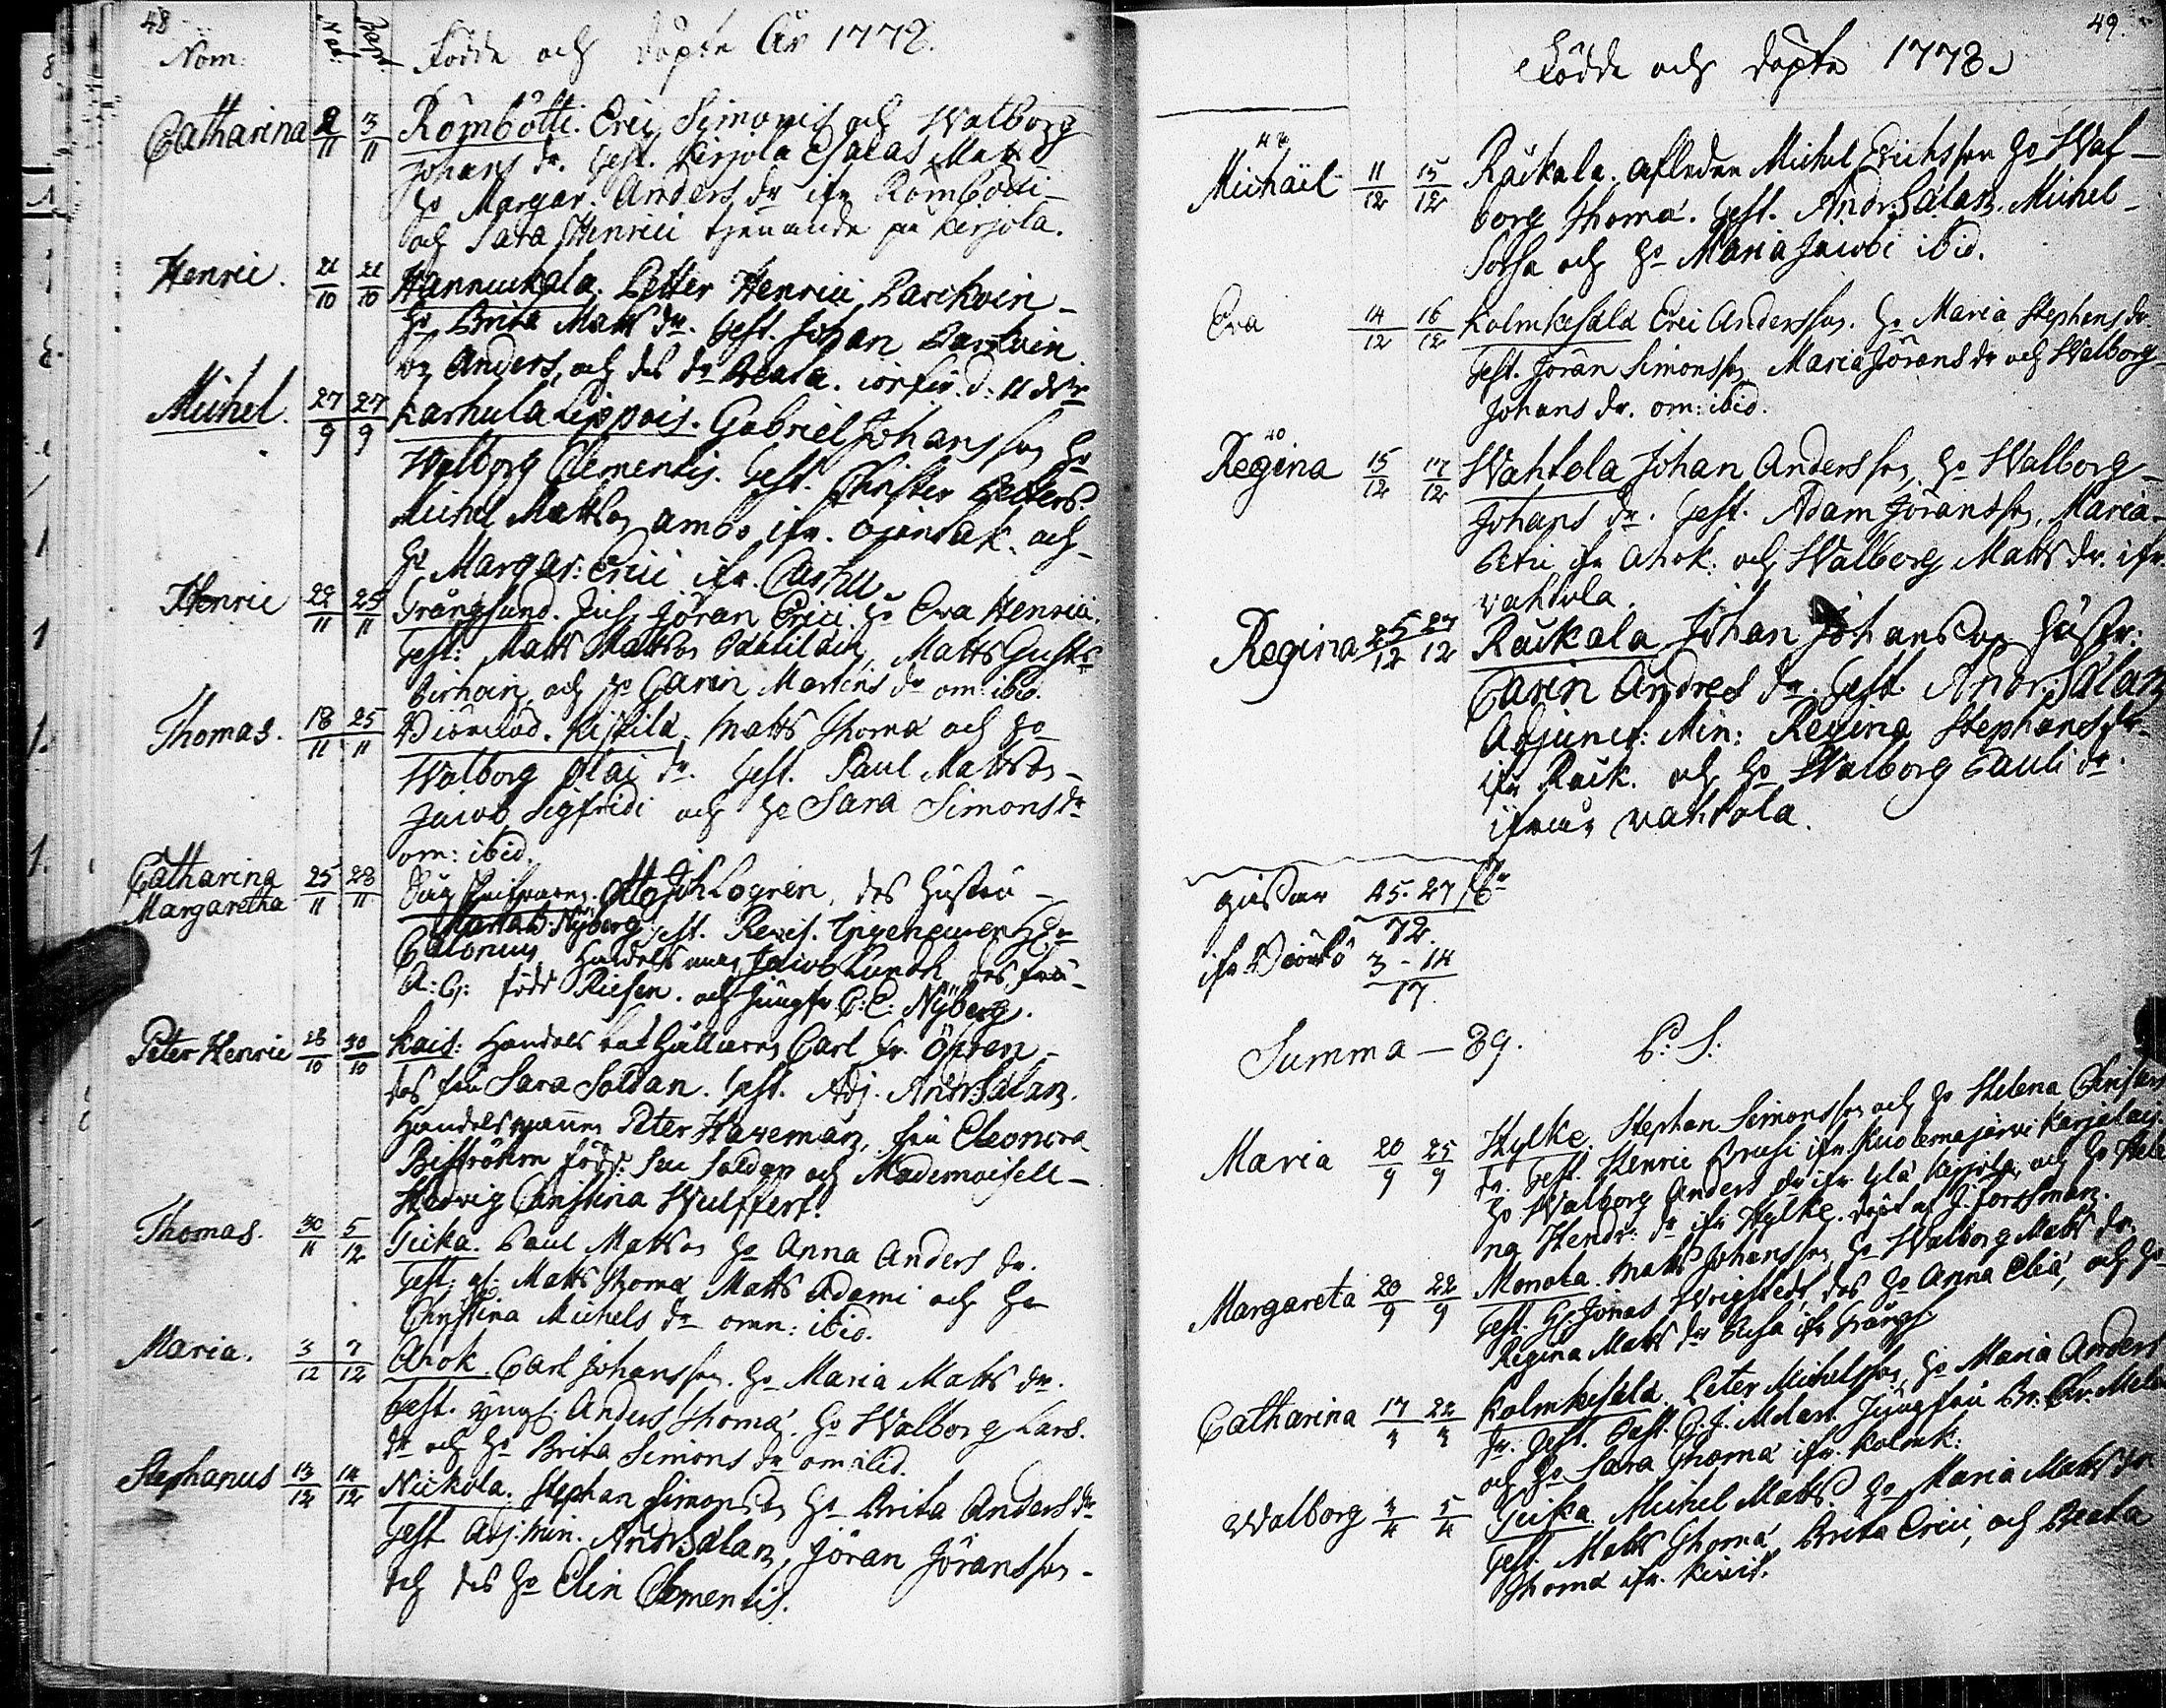 48
Nom: Nat: Bapt: Födde och döpte År 1778.
Catharina 2/11 3/11 Römbötti. Eric Simonis och Walborg
Johans dr. test. Kirjola Esaias Matts
ho Margar. Anders dr ifr Römbötti
och Sara Henrici tjenande på Kirjola.
Henric. 21/10 21/10 Hannuckala. Petter Henrici Parckoin
ho Brita Matts dr. test. Johan Parckoin
br Anders, och des dr Beata.
Michel. 27/9 27/9 Karhula Lippois. Gabriel Johansson ho
Walborg Clementis. test. Christer Petters.
Michel Mattson ambo ifr. och
ho Margar: Erici ifr. Carhu.
Henric 22/11 25/11 Trångsund. Jöran Erici. ho Eva Henrici.
test: Matts Mattson, Matts Gust
och ho Carin Martens dr om: ibid.
Thomas. 18/11 25/11 Kiskila, Matts Thomæ och ho
Walborg Olai dr. test. Paul Mattson
Jacob Sigfridi och ho Sara Simonsdr
om: ibid.
Catharina Margaretha 25/11 28/11 Otto Joh Logren, des hustru
Maria Nyberg test. Revis.
Calonius Handelsman Jacob Lundh des fru
A: C: född Riesen. och Jungfr C: E: Nyberg.
Peter Henric 28/10 30/10 Kais: Handels Carl Fr. Öhren
des fru Sara Soldan. test. Adj. And: Salan.
Handelsmannen Peter Haveman, fru Eleonora
Bistróhm född Soldan och Mademoisell
Hedvig Christina Wulffert.
Thomas. 30/11 5/12 Tiuka. Paul Mattson ho Anna Anders dr.
test. gl: Matts Thomæ Matts Adami och ho
Christina Michels dr omn: ibid.
Maria. 3/12 7/12 Ahok. Carl Johansson. ho Maria Matts dr.
test. Anders Thomæ. ho Walborg Lars.
dr och ho Brita Simons dr om ibid.
Stephanus 13/12 14/12 Nickola. Stephan Simonson ho Brita Anders dr
test Adj: Min. And: Salan, Jöran Jöransson
och des ho Elin Clementis.
49.
Födde och döpte 1778.
Michäil 11/12 15/12 Räikälä. aflednen Michel Erichsson ho Wal-
borg Thomæ. test. And: Salan. Michel
Sorsa och ho Maria Jacobi ibid.
Eva 14/12 16/12 Kolmkesälä Eric Andersson. ho Maria Stephens dr.
test. Jöran Simonsson, Maria Jörans dr och Walborg
Johans dr. om: ibid.
40
Regina 15/12 17/12 Wahtola Johan Andersson, ho Walborg
Johans dr. test. Adam Jöransson, Maria
Petri ifr Ahok. och Walborg Matts dr. ifr.
Vahtola.
Regina 25/12 27/12 Räikälä Johan Johansson hustr:
Carin Andres dr. test. And: Salan
Adjunct: Min: Regina Stephens dr.
ifr Räik. och ho Walborg Pauli dr.
ifrån Vahtola.
45. 27
72.
ifr 3 - 14
17.
Summa - 89. P: S:
Maria 20/9 25/9 Hylke, Stephan Simonsson och ho Helena Christians
dr. test. Henric ifr Kuolemajärvi Karjalais.
ho Walborg Anders dr ifr Ylä Kirjola, och ho Hele
na Hendr: dr ifr Hylke. döpt af J: Forssman.
Margareta 20/9 22/9 Monola. Matts Johansson ho Walborg Matts dr.
test. Jonas Wrigstedt, des ho Anna Eliæ, och ho
Regina Matts dr ifr Trångs
Catharina 17/3 22/3 Kolmkesälä. Peter Michelsson ho Maria Anders
dr. test. Past: G. J. Melart Jungfru
och ho Sara Thomæ ifr. Kolmk:
Walborg 3/4 5/4 Tiuka. Michel Matts. ho Maria Matts dr
test. Matts Thomæ, Brita Erici, och Beata
Thomæ ifr. Kivit.